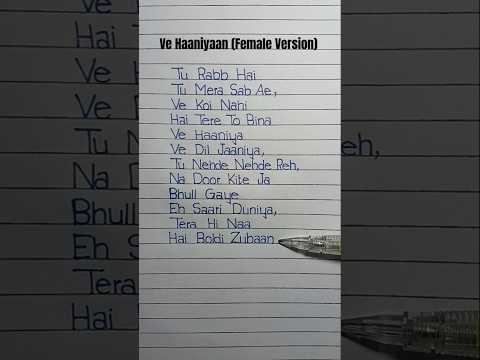 Ve Haaniyaan (Female Version)
Tu Rabb Hai
Tu Mera Sab Ae,
Ve Koi Nahi
Hai Tere To Bina
Ve Haaniya
Ve Dil Jaaniya,
Tu Nehde Nehde Reh,
Na Door Kite Ja
Bhull Gaye
Eh Saari Duniya,
Tera Hi Naa
Hai Boldi Zubaan